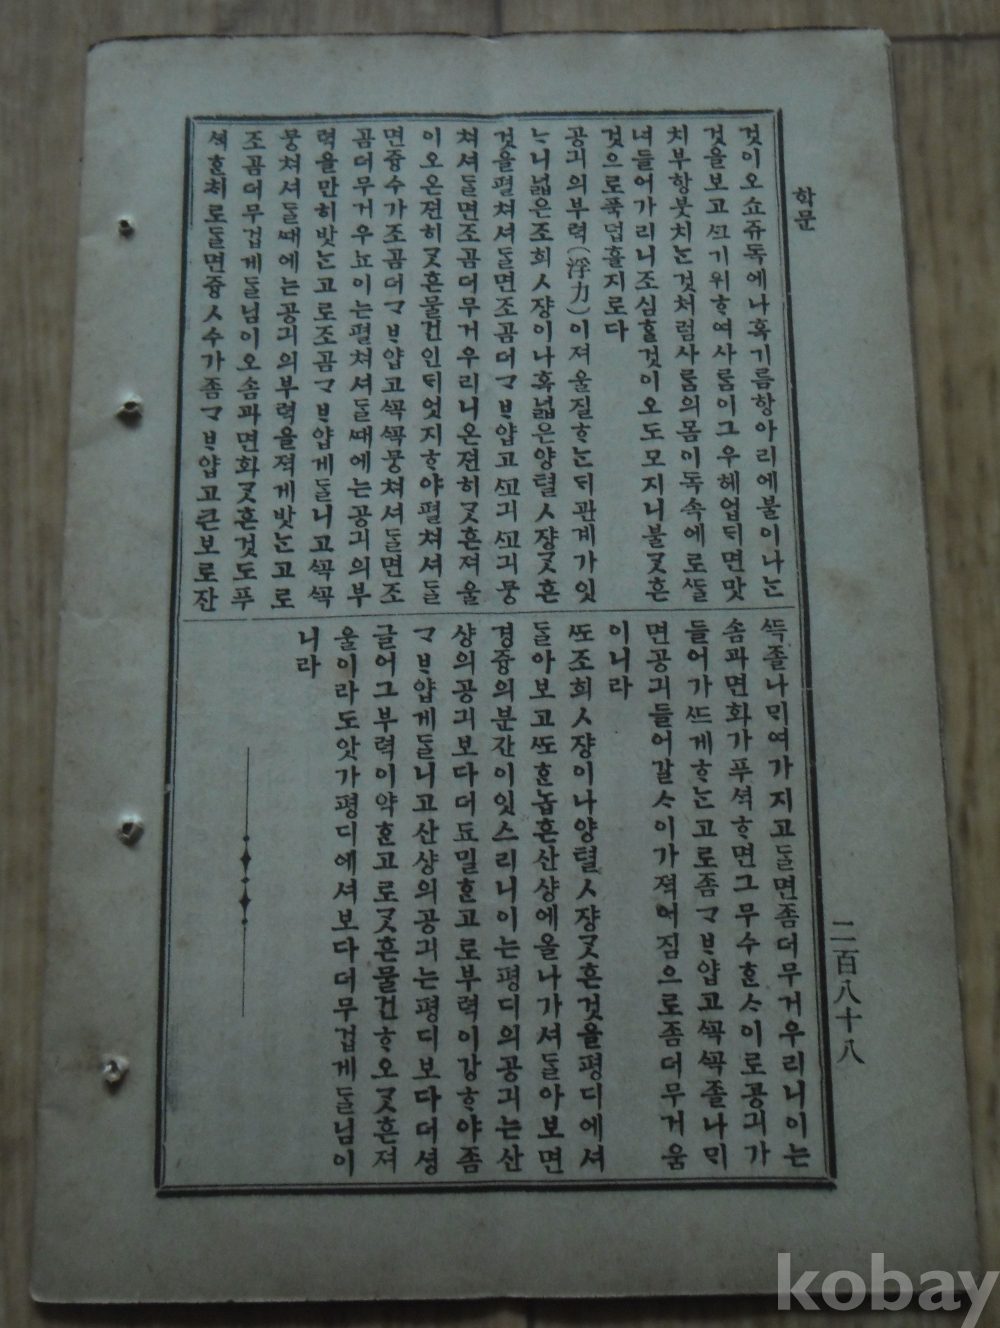 학문
것이오쇼쥬독에나혹기름항아리에불이나ᄂᆞᆫ
것을보고ᄭᅳ기위ᄒᆞ여사ᄅᆞᆷ이그우헤업ᄃᆡ면맛
치부항붓치ᄂᆞᆫ것쳐럼사ᄅᆞᆷ의몸이독속에로ᄲᅡᆯ
녀들어가리니조심ᄒᆞᆯ것이오도모지니불ᄀᆞᆺ흔
것으로푹덥흘지로다
공긔의부력(浮力)이져울질ᄒᆞᄂᆞᆫᄃᆡ관계가잇
ᄂᆞ니넓은조희ㅅ쟝이나혹넓은양텰ㅅ쟝ᄀᆞᆺ흔
것을펼쳐셔ᄃᆞᆯ면조곰더ᄀᆞᄇᆡ얍고ᄭᅩ긔ᄭᅩ긔뭉
쳐셔ᄃᆞᆯ면조곰더무거우리니온젼히ᄀᆞᆺ흔져울
이오온젼히ᄀᆞᆺ흔물건인ᄃᆡ엇지ᄒᆞ야펼쳐셔ᄃᆞᆯ
면즁수가조곰더ᄀᆞᄇᆡ얍고ᄭᅩᆨᄭᅩᆨ뭉쳐셔ᄃᆞᆯ면조
곰더무거우뇨이는펼쳐셔ᄃᆞᆯᄯᅢ에는공긔의부
력을만히밧ᄂᆞᆫ고로조곰ᄀᆞᄇᆡ얍게ᄃᆞᆯ니고ᄭᅩᆨᄭᅩᆨ
뭉쳐셔ᄃᆞᆯᄯᅢ에는공긔의부력을젹게밧ᄂᆞᆫ고로
조곰더무겁게ᄃᆞᆯ님이오솜과면화ᄀᆞᆺ흔것도푸
셕ᄒᆞᆫ채로ᄃᆞᆯ면즁ㅅ수가좀ᄀᆞᄇᆡ얍고큰보로잔
ᄯᅳᆨ졸나ᄆᆡ여가지고ᄃᆞᆯ면좀더무거우리니이는
솜과면화가푸셕ᄒᆞ면그무수ᄒᆞᆫᄉᆞ이로공긔가
들어가ᄯᅳ게ᄒᆞᄂᆞᆫ고로좀ᄀᆞᄇᆡ얍고ᄭᅩᆨᄭᅩᆨ졸나ᄆᆡ
면공긔들어갈ᄉᆞ이가젹어짐으로좀더무거움
이니라
ᄯᅩ조희ㅅ쟝이나양텰ㅅ쟝ᄀᆞᆺ흔것을평디에셔
ᄃᆞᆯ아보고ᄯᅩᄒᆞᆫ놉흔산샹에올나가셔ᄃᆞᆯ아보면
경즁의분간이잇스리니이는평디의공긔는산
샹의공긔보다더됴밀ᄒᆞᆫ고로부력이강ᄒᆞ야좀
ᄀᆞᄇᆡ얍게ᄃᆞᆯ니고산샹의공긔는평디보다더셩
글어그부력이약ᄒᆞᆫ고로ᄀᆞᆺ흔물건ᄒᆞ오ᄀᆞᆺ흔져
울이라도앗가평디에셔보다더무겁게ᄃᆞᆯ님이
니라
二百八十八
kobay